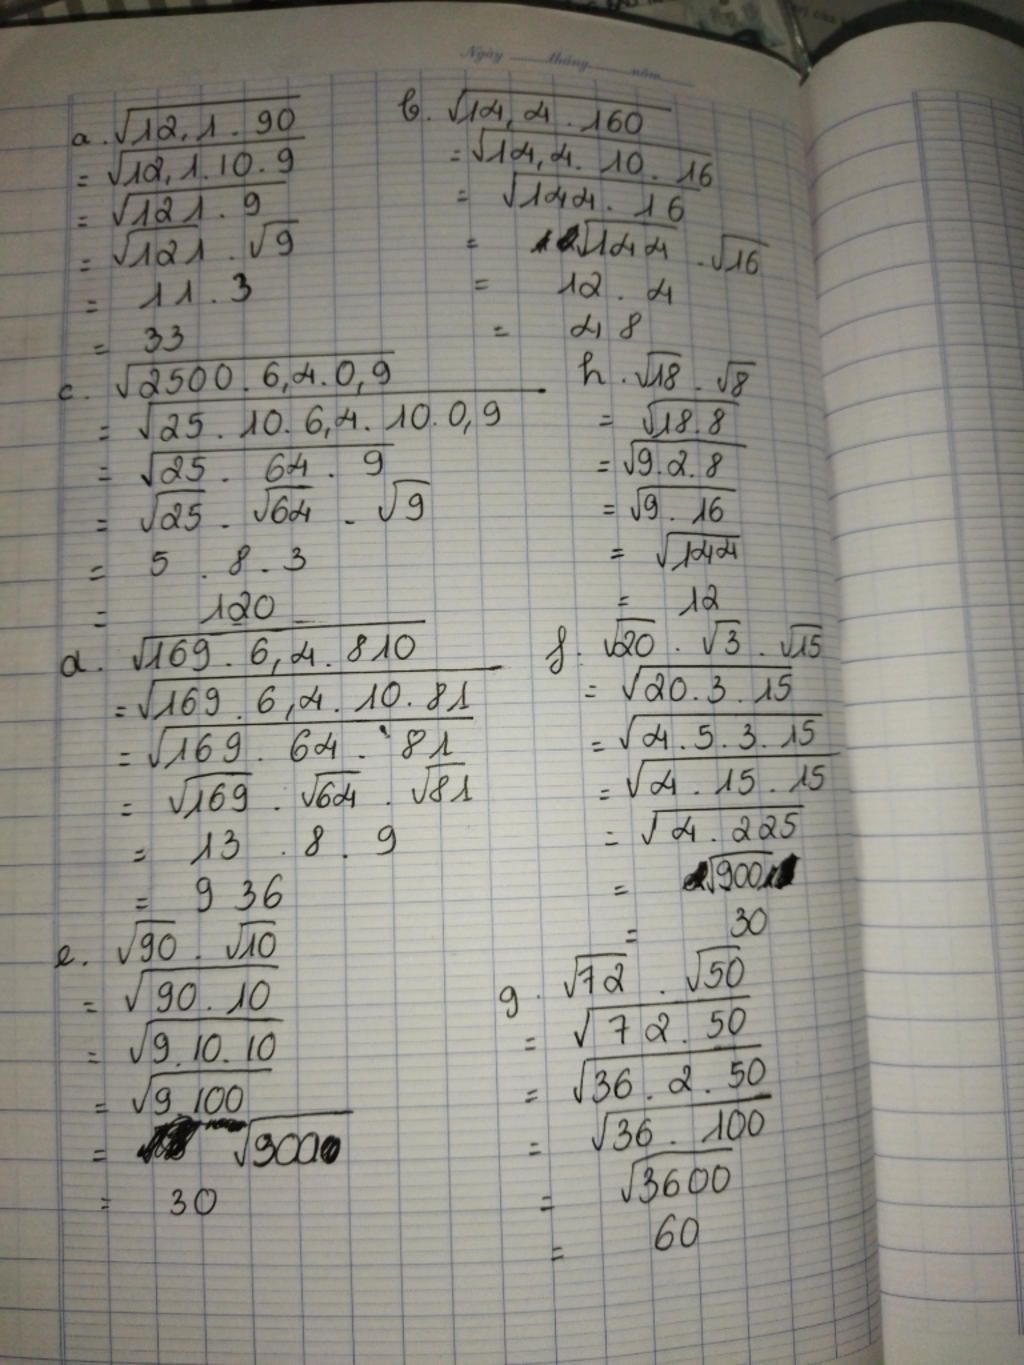 Ngày tháng năm
a. √12,1 . 90
= √12,1.10.9
= √121 . 9
= √121 . √9
= 11.3
= 33
b. √14,4 . 160
= √14,4. 10. 16
= √144. 16
= √144 . √16
= 12 . 4
= 48
c. √2500 . 6,4.0,9
= √25 . 10. 6,4. 10.0,9
= √25 . 64 . 9
= √25 . √64 . √9
= 5 . 8 . 3
= 120
h. √18 . √8
= √18.8
= √9.2.8
= √9 . 16
= √144
= 12
d. √169 . 6,4. 810
= √169 . 6,4. 10. 81
= √169 . 64 . 81
= √169 . √64 . √81
= 13 . 8 . 9
= 936
f. √20 . √3 . √15
= √20.3.15
= √4.5.3.15
= √4 . 15 . 15
= √4 . 225
= √900
= 30
e. √90 . √10
= √90 . 10
= √9.10.10
= √9.100
= √900
= 30
g. √72 . √50
= √72 . 50
= √36 . 2 . 50
= √36 . 100
= √3600
= 60